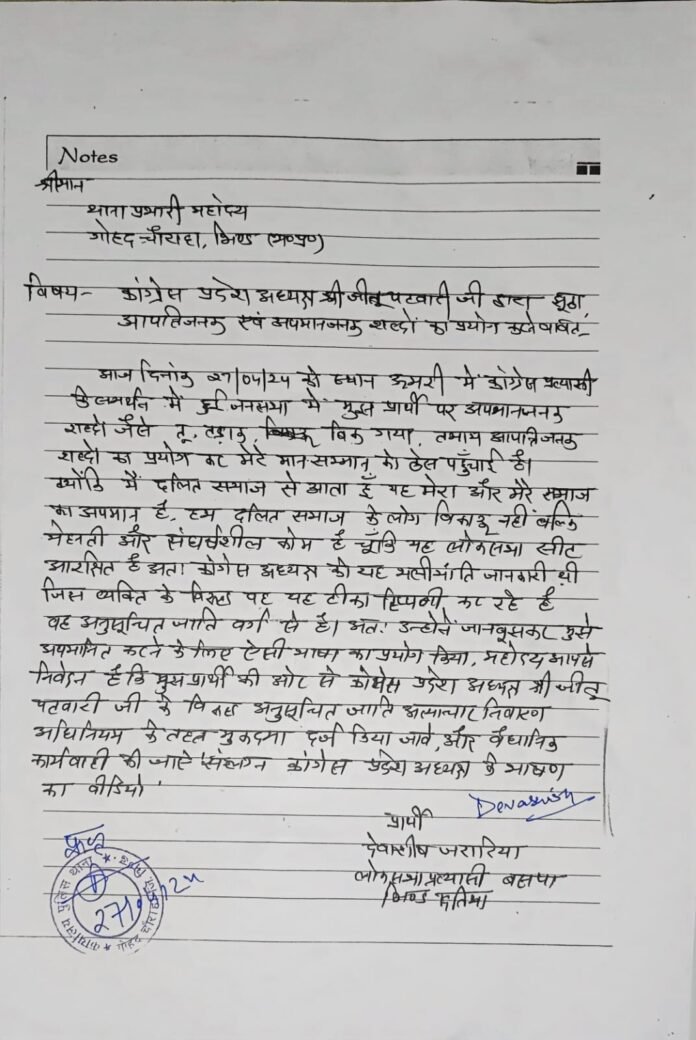 Notes
श्रीमान
थाना प्रभारी महोदय
गोहद चौराहा, भिण्ड (म०प्र०)
विषय- कांग्रेस प्रदेश अध्यक्ष श्री जीतू पटवारी जी द्वारा झूठा,
आपतिजनक एवं अपमानजनक शब्दों का प्रयोग करने बावत्
आज दिनांक 27/04/24 को स्थान में कांग्रेस प्रत्याशी
के समर्थन में हुई जनसभा में मुझ प्रार्थी पर अपमानजनक
शब्दो जैसे तू, तड़ाक, बिक गया, तमाम आपत्तिजनक
शब्दो का प्रयोग कर मेरे मान सम्मान को ठेस पहुँचाई है।
क्योंकि मैं दलित समाज से आता हूँ यह मेरा और मेरे समाज
का अपमान है, हम दलित समाज के लोग बिकाऊ नहीं बल्कि
मेहनती और संघर्षशील कौम है चूँकि यह लोकसभा सीट
आरक्षित है अतः कांग्रेस अध्यक्ष को यह भलीभांति जानकारी थी
जिस व्यक्ति के विरुद्ध वह यह टीका टिप्पणी कर रहे है
वह अनुसूचित जाति वर्ग से है। अतः उन्होनें जानबूझकर मुझे
अपमानित करने के लिए ऐसी भाषा का प्रयोग किया, महोदय आपसे
निवेदन है कि मुझ प्रार्थी की ओर से कांग्रेस प्रदेश अध्यक्ष श्री जीतू
पटवारी जी के विरुद्ध अनुसूचित जाति अत्याचार निवारण
अधिनियम के तहत मुकदमा दर्ज किया जावे, और वैधानिक
कार्यवाही की जाऐ 'संलग्न कांग्रेस प्रदेश अध्यक्ष के भाषण
का वीडियो'
Devashish
प्रार्थी
देवाशीष जरारिया
लोकसभा प्रत्याशी बसपा
भिण्ड दतिया
कार्यालय पुलिस थाना
गोहद चौराहा